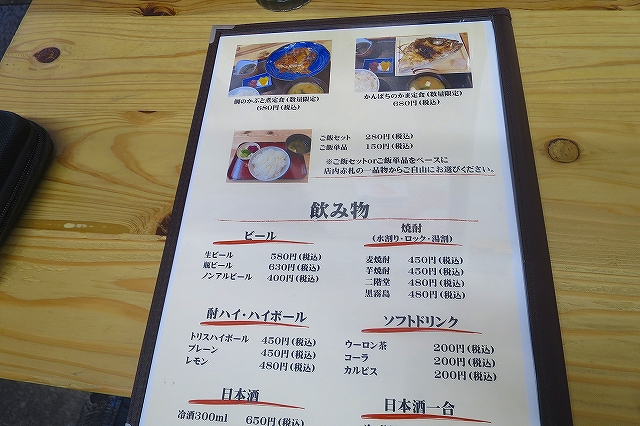 鯛のかぶと煮定食(数量限定)
680円(税込)
かんぱちのかま定食(数量限定)
680円(税込)
ご飯セット 280円(税込)
ご飯単品 150円(税込)
※ご飯セットorご飯単品をベースに
店内赤札の一品物からご自由にお選びください。
飲み物
ビール
生ビール 580円(税込)
瓶ビール 630円(税込)
ノンアルビール 400円(税込)
焼酎
(水割り・ロック・湯割)
麦焼酎 450円(税込)
芋焼酎 450円(税込)
二階堂 480円(税込)
黒霧島 480円(税込)
酎ハイ・ハイボール
トリスハイボール 450円(税込)
プレーン 450円(税込)
レモン 480円(税込)
ソフトドリンク
ウーロン茶 200円(税込)
コーラ 200円(税込)
カルピス 200円(税込)
日本酒
冷酒300ml 650円(税込)
日本酒一合